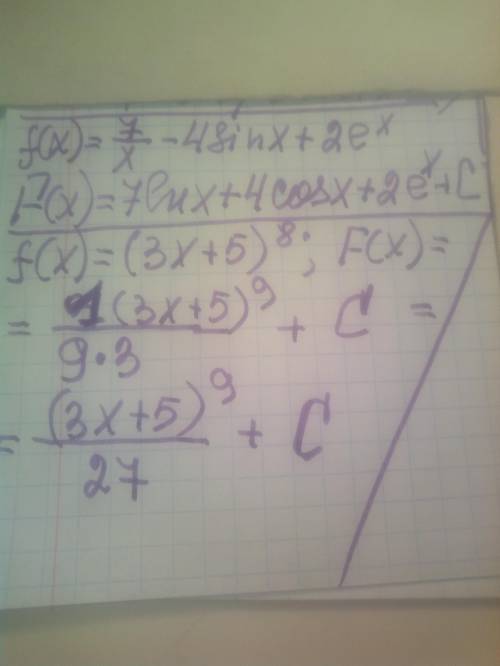 f(x) = 7/x - 4sinx + 2e^x
F(x) = 7lnx + 4cosx + 2e^x + C
f(x) = (3x+5)^8; F(x) =
= 1(3x+5)^9/9·3 + C =
= (3x+5)^9/27 + C